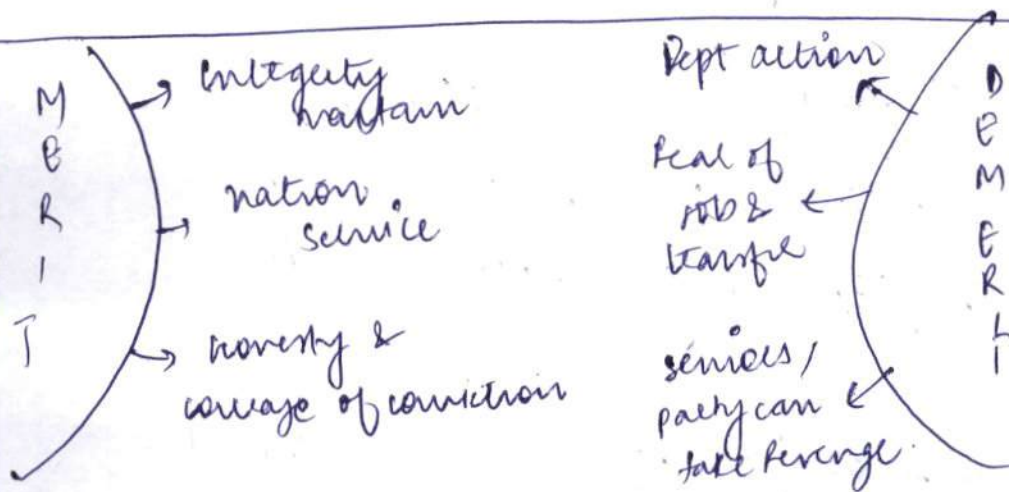 MERIT
Integrity
maintain
nation
service
honesty &
courage of conviction
Dept action
Fear of
job &
transfer
seniors/
party can
take revenge.
DEMERIT